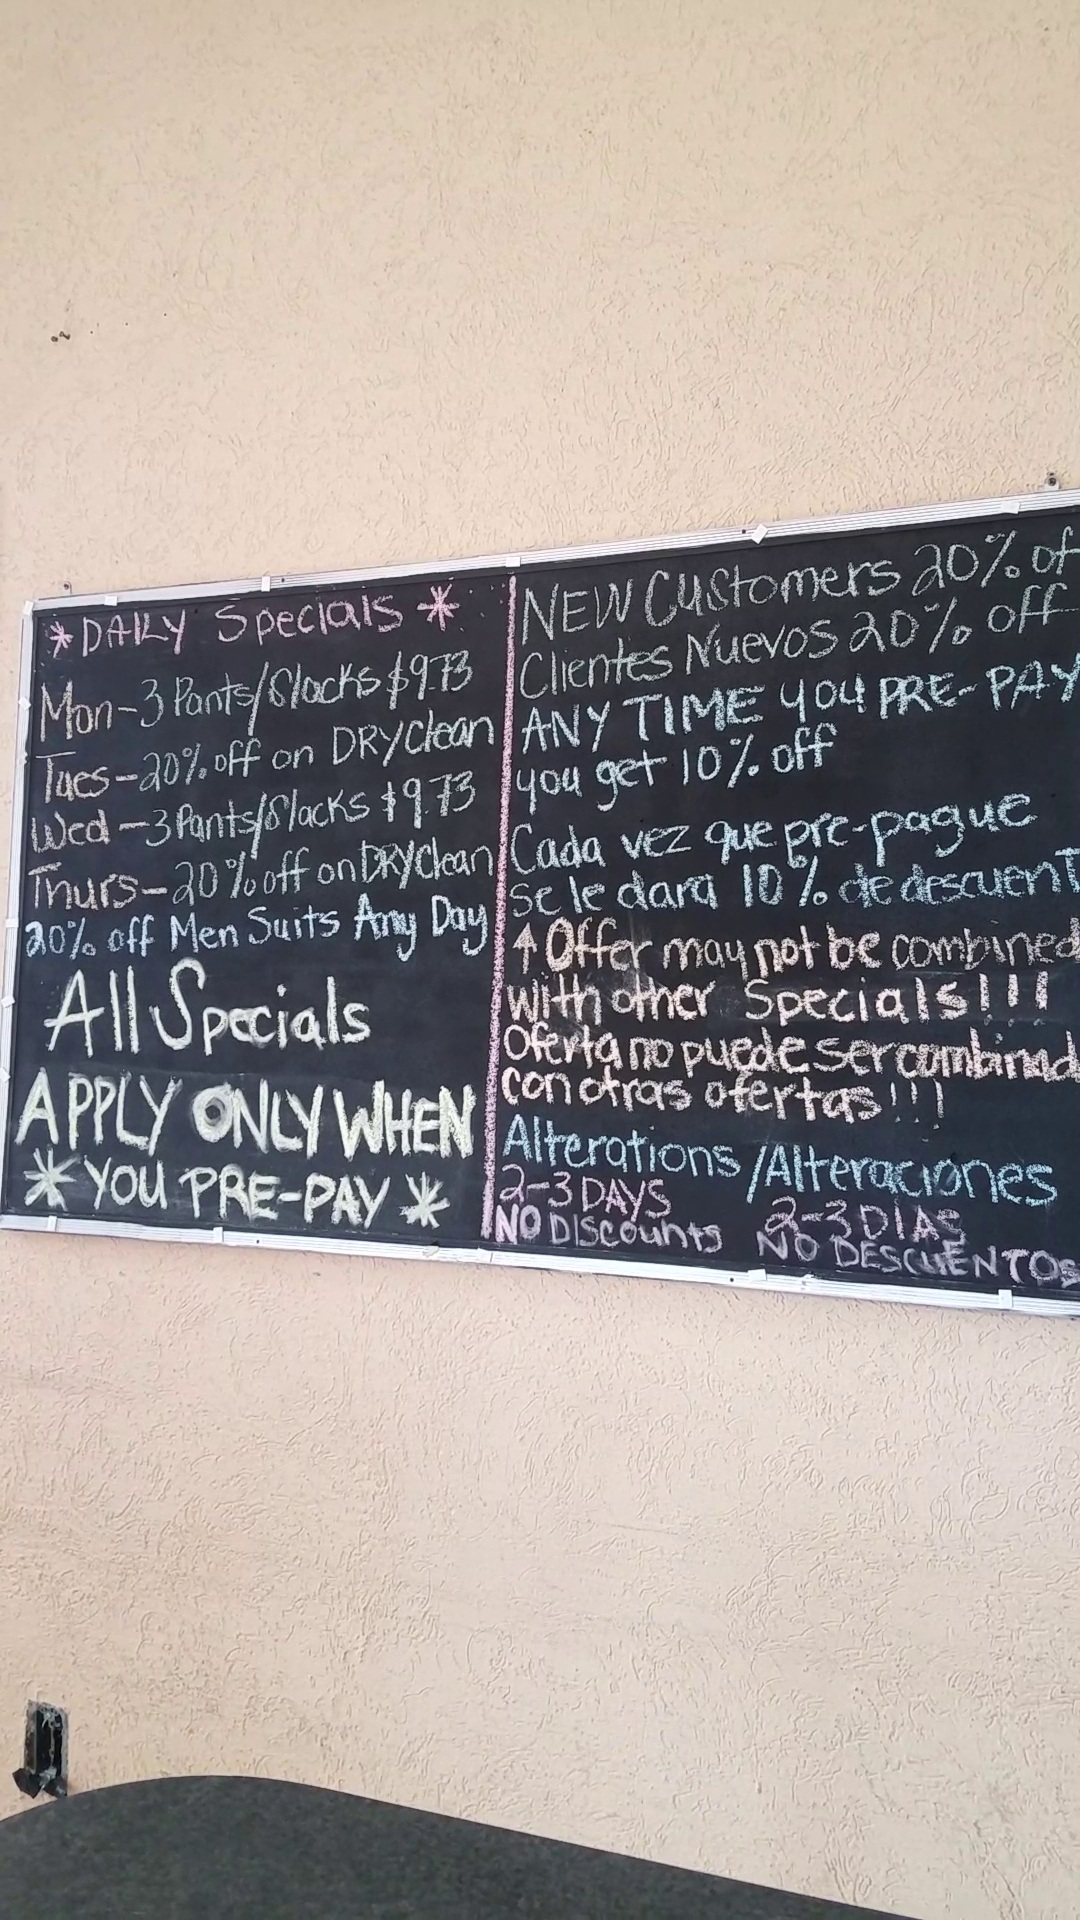 *DAILY Specials *
Mon-3 Pants/Slacks $9.73
Tues-20% off on DRYclean
Wed-3 Pants/Slacks $9.73
Thurs-20% off on DRYclean
20% off Men Suits Any Day
All Specials
APPLY ONLY WHEN
* YOU PRE-PAY *
NEW Customers 20% of
Clientes Nuevos 20% off
ANY TIME you PRE-PAY
you get 10% off
Cada vez que pre-pague
se le dara 10% de descuent
↑ Offer may not be combined
with other Specials!!!
Oferta no puede ser combinad
con otras ofertas!!!
Alterations /Alteraciones
2-3 DAYS 2-3 DIAS
NO Discounts NO DESCUENTOS